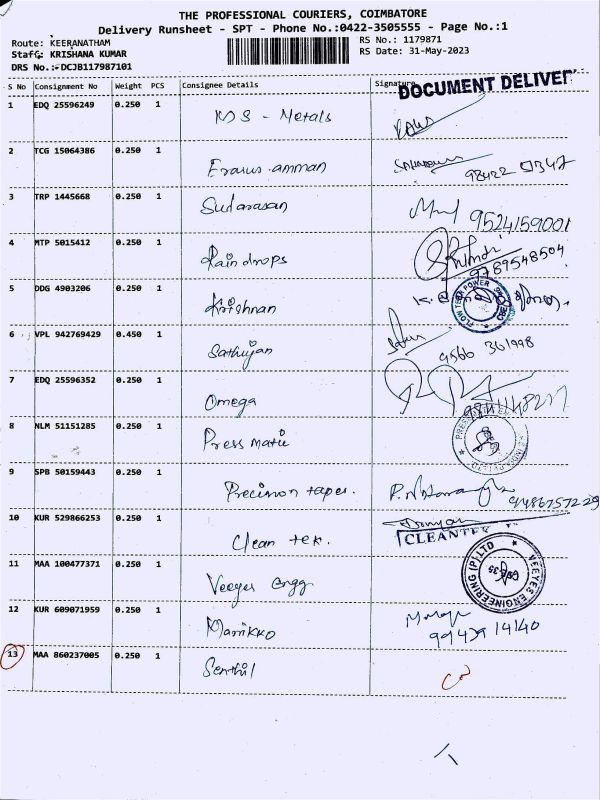 THE PROFESSIONAL COURIERS, COIMBATORE
Delivery Runsheet - SPT - Phone No.:0422-3505555 - Page No.:1
Route: KEERANATHAM RS No.: 1179871
Staff: KRISHANA KUMAR RS Date: 31-May-2023
DRS No.:-DCJB117987101
S No Consignment No Weight PCS Consignee Details Signature
DOCUMENT DELIVER
1 EDQ 25596249 0.250 1 KDS - Metals
2 TCG 15064386 0.250 1 amman
3 TRP 1445668 0.250 1 Sudarasan 9524159001
4 MTP 5015412 0.250 1 Rain drops 9789548504
5 DDG 4903206 0.250 1 Krishnan
FLOW TECH POWER
6 VPL 942769429 0.450 1 Sathiyan 9566 361998
7 EDQ 25596352 0.250 1 Omega
8 NLM 51151285 0.250 1 Press Matic
9 SPB 50159443 0.250 1 Precision tapes. 9486757229
10 KUR 529866253 0.250 1 Clean tek.
CLEANTEK
11 MAA 100477371 0.250 1 Veeyes Engg
VEEYES ENGINEERING (P) LTD
12 KUR 609071959 0.250 1 Marikko 99439 14140
13 MAA 860237005 0.250 1 Senthil